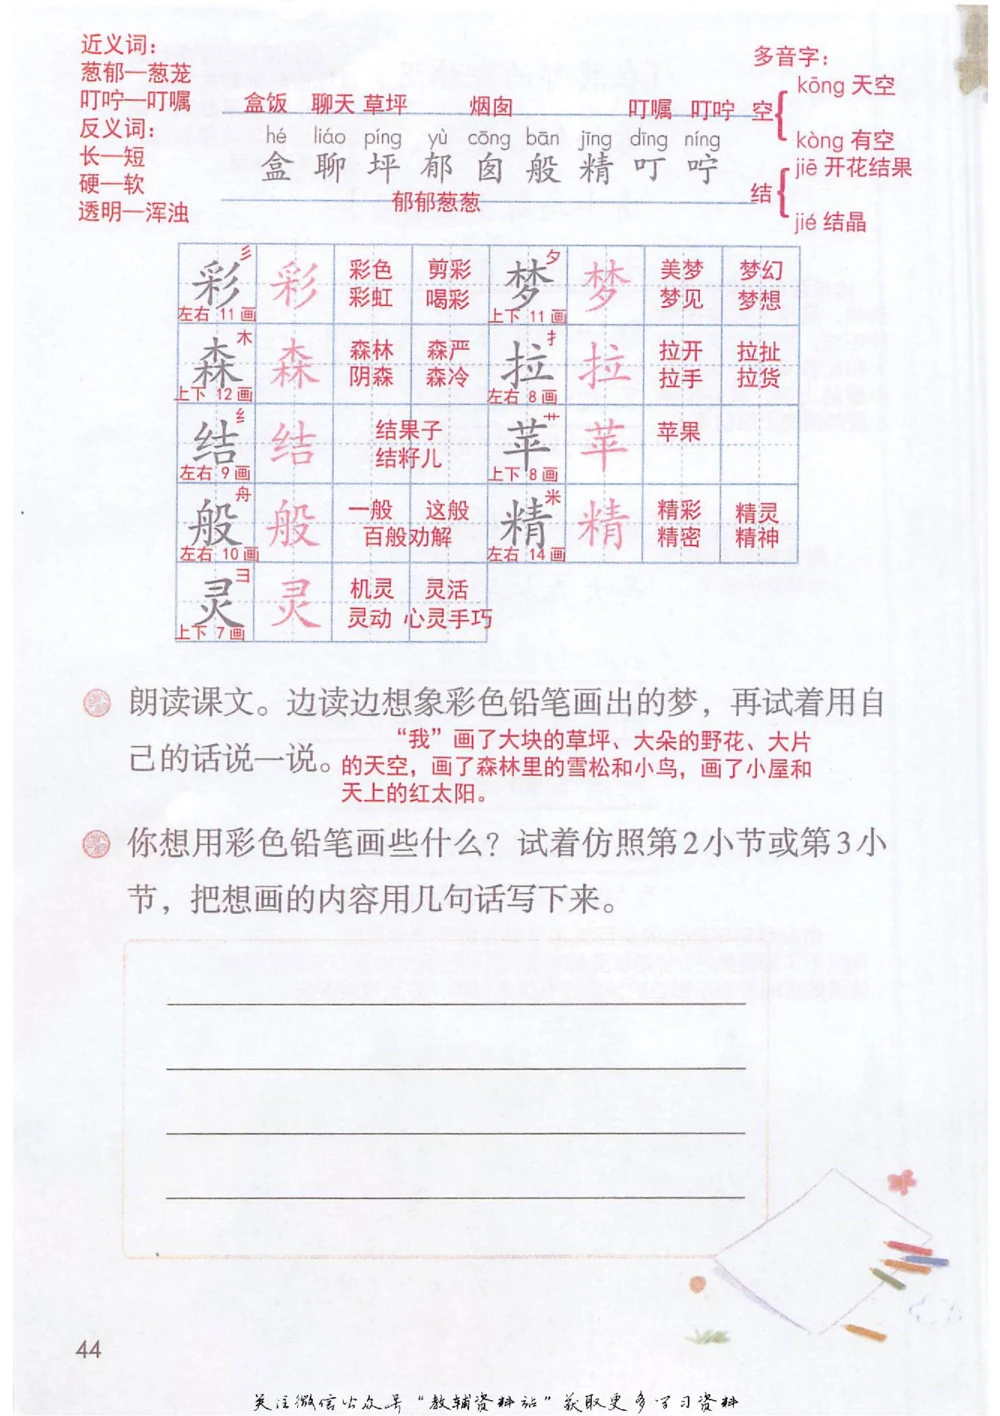 近义词：
葱郁—葱茏
叮咛—叮嘱
反义词：
长—短
硬—软
透明—浑浊
盒饭 聊天 草坪 烟囱 叮嘱 叮咛
hé liáo píng yù cōng bān jīng dīng níng
盒 聊 坪 郁 囱 般 精 叮 咛
郁郁葱葱
多音字：
空
kōng 天空
kòng 有空
结
jiē 开花结果
jié 结晶
彩 彡 左右 11画 彩 彩色 剪彩 彩虹 喝彩
梦 夕 上下 11画 梦 美梦 梦幻 梦见 梦想
森 木 上下 12画 森 森林 森严 阴森 森冷
拉 扌 左右 8画 拉 拉开 拉扯 拉手 拉货
结 纟 左右 9画 结 结果子 结籽儿
苹 艹 上下 8画 苹 苹果
般 舟 左右 10画 般 一般 这般 百般劝解
精 米 左右 14画 精 精彩 精灵 精密 精神
灵 彐 上下 7画 灵 机灵 灵活 灵动 心灵手巧
朗读课文。边读边想象彩色铅笔画出的梦，再试着用自
己的话说一说。
“我”画了大块的草坪、大朵的野花、大片
的天空，画了森林里的雪松和小鸟，画了小屋和
天上的红太阳。
你想用彩色铅笔画些什么？试着仿照第2小节或第3小
节，把想画的内容用几句话写下来。
44
关注微信公众号“教辅资料站”获取更多学习资料